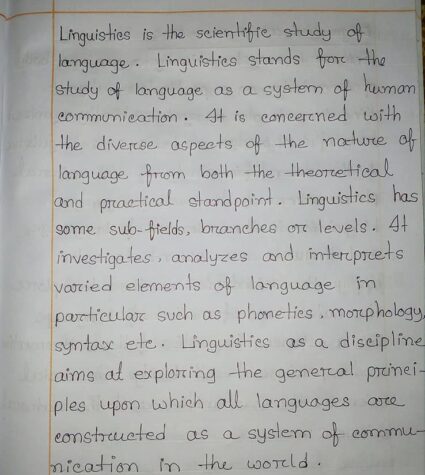 Linguistics is the scientific study of
language. Linguistics stands for the
study of language as a system of human
communication. It is concerned with
the diverse aspects of the nature of
language from both the theoretical
and practical standpoint. Linguistics has
some sub-fields, branches or levels. It
investigates, analyzes and interprets
varied elements of language in
particular such as phonetics, morphology,
syntax etc. Linguistics as a discipline
aims at exploring the general princi-
ples upon which all languages are
constructed as a system of commu-
nication in the world.